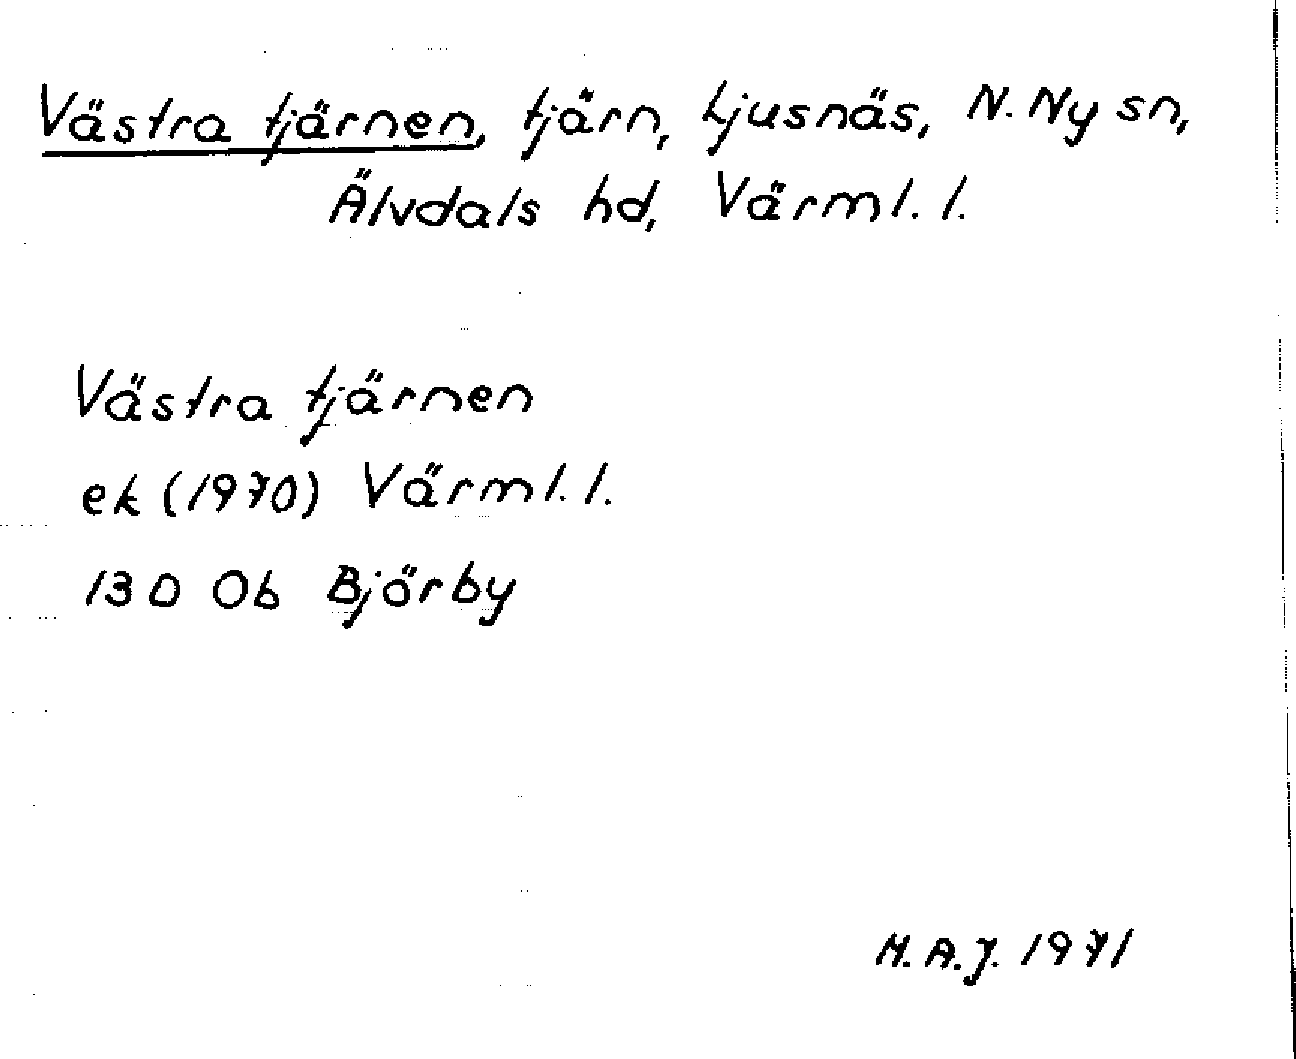 Västra tjärnen, tjärn, Ljusnäs, N. Ny sn,
Älvdals hd, Värml. l.
Västra tjärnen
ek (1970) Värml. l.
13D 0b Björby
M. A. J. 1971